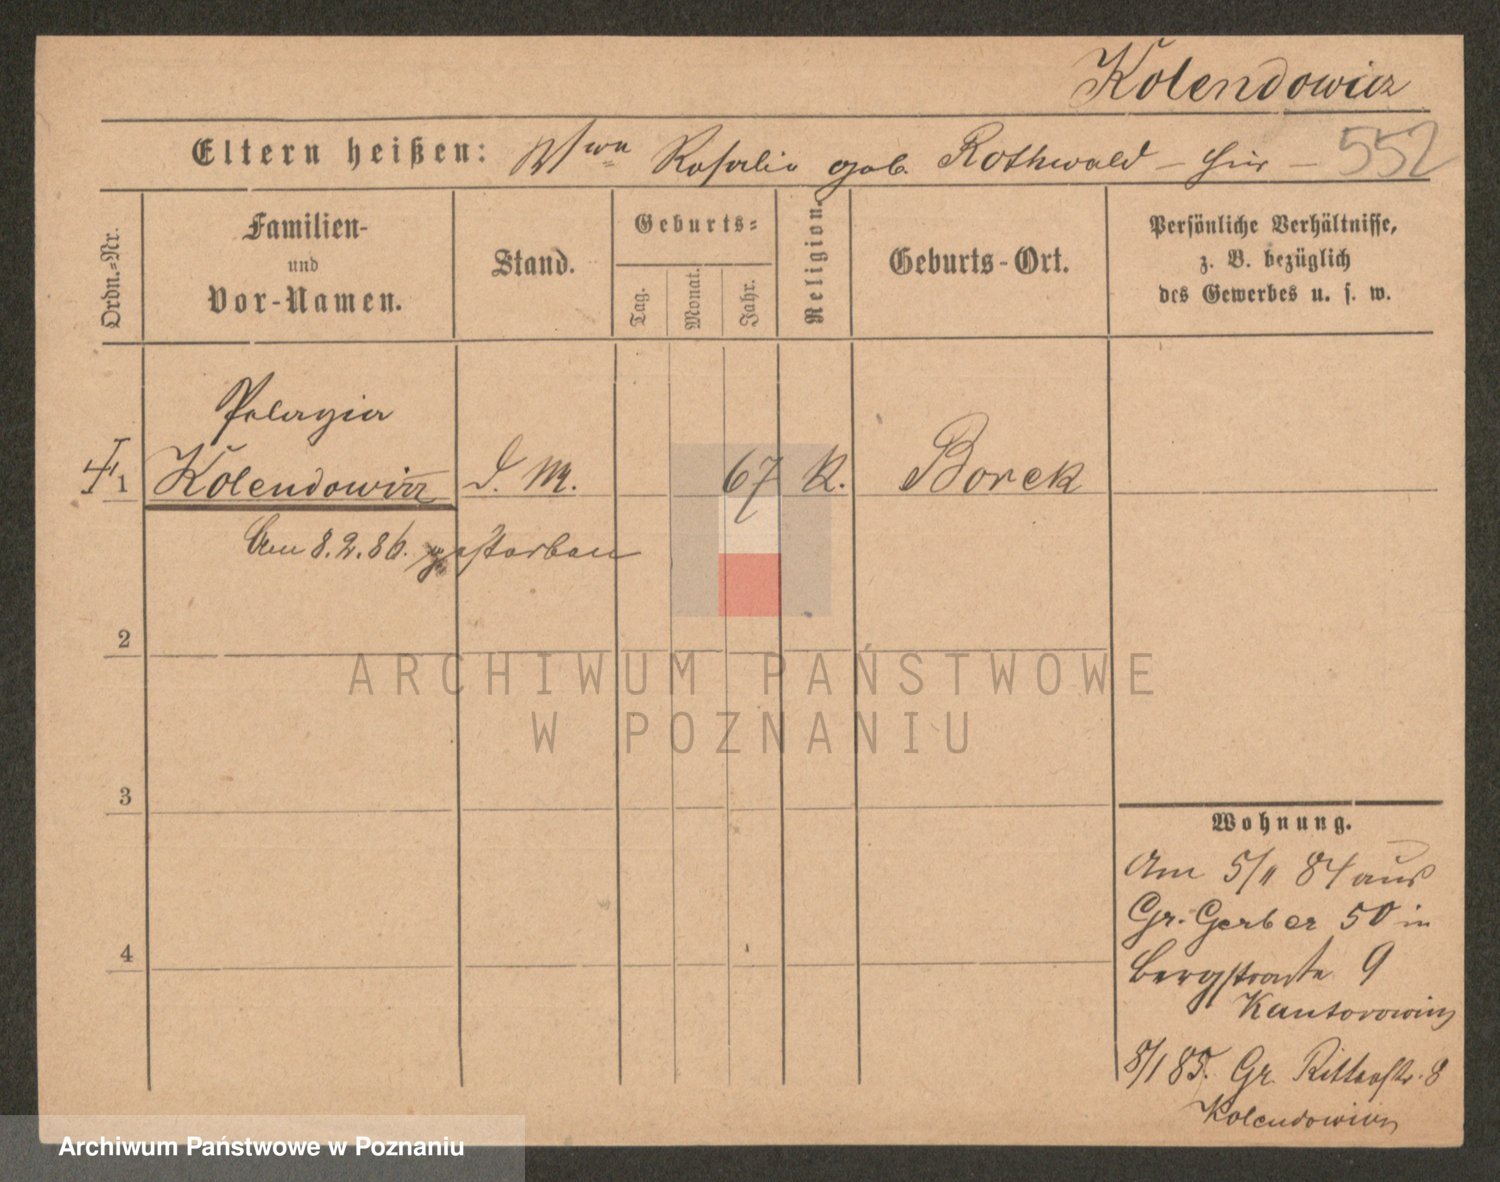 Kolendowicz
Eltern heißen: Wwe Rosalie geb. Rothwald – hier – 552
Ordn.-Nr.
Familien-
und
Vor-Namen.
Stand.
Geburts-
Tag.
Monat.
Jahr.
Religion.
Geburts-Ort.
Persönliche Verhältnisse,
z. B. bezüglich
des Gewerbes u. s. w.
Pelagia
1 Kolendowicz 67 K. Borek
Am 8.2.86. gestorben
2
3
4
Wohnung.
Am 5/11 84 aus
Gr. Gerber 50 in
Bergstraße 9
Kantorowicz
8/1 85. Gr. Ritterstr. 8
Kolendowicz
ARCHIWUM PAŃSTWOWE
W POZNANIU
Archiwum Państwowe w Poznaniu